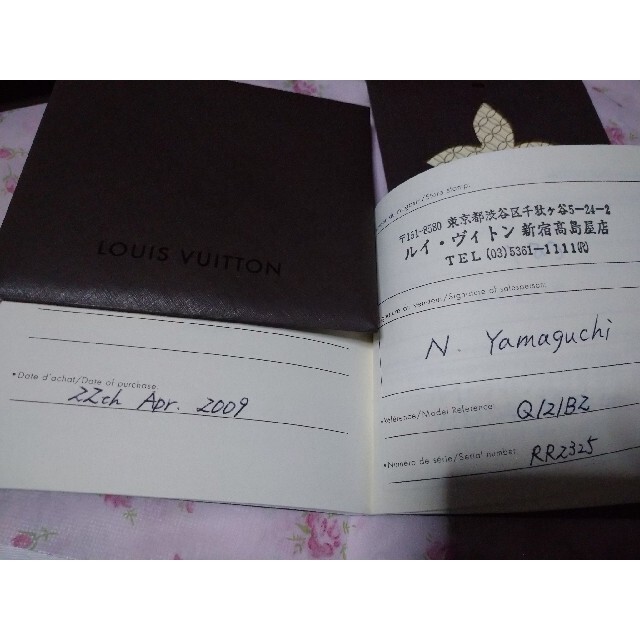 LOUIS VUITTON
•Date d'achat/Date of purchase:
22ch Apr. 2009
magasin/Store stamp:
〒151-8580 東京都渋谷区千駄ヶ谷5-24-2
ルイ・ヴィトン 新宿髙島屋店
TEL (03)5361-1111㈹
vendeur/Signature of salesperson:
N. Yamaguchi
•Référence/Model Reference:
Q121BZ
•Numéro de série/Serial number:
RR2325